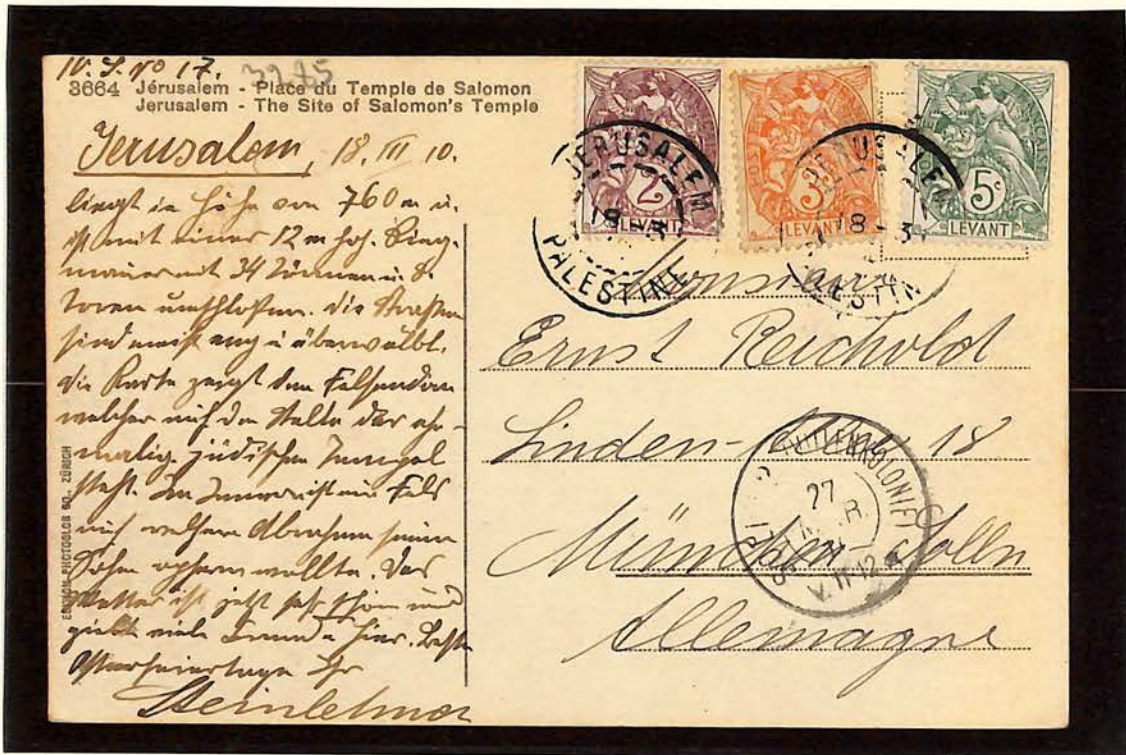 IV. S. No 17.
3275
3664 Jérusalem - Place du Temple de Salomon
Jerusalem - The Site of Salomon's Temple
Jerusalem, 18. III 10.
liegt in Höhe von 760 m ü.
ist mit einer 12 m hoh. Ring-
mauer mit 34 Türmen u. 8.
Toren umschlossen. Die Straßen
sind meist eng u überwölbt.
Die Karte zeigt den Felsendom
welcher auf der Stelle des ehe-
malig. jüdischen Tempel
steht. Im Innern ist ein Fels
auf welchem Abraham seinen
Sohn opfern wollte. Das
Wetter ist jetzt sehr schön und
giebt viele Fremde hier. Beste
Osterfeiertage Ihr
Steinlehner
PHOTOGLOB CO., ZÜRICH
2
LEVANT
3
LEVANT
5c
LEVANT
JERUSALEM
18 3
PALESTINE
JERUSALEM
18 3
Monsieur
Ernst Reichold
Linden-Allee 18
München Solln
Allemagne
27
MAR.
V. 11-12